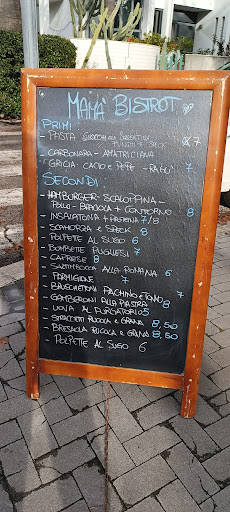 MAMÀ BISTROT
PRIMI:
- PASTA GNOCCHI 7
FUNGHI E SPECK
- CARBONARA - AMATRICIANA
- GRICIA - CACIO E PEPE - RAGÙ 7
SECONDI:
- HAMBURGER - SCALOPPINA -
POLLO - BRACIOLA + CONTORNO 8
- INSALATONA + 7/8
- SCAMORZA E SPECK 8
- POLPETTE AL SUGO 6
- BOMBETTE PUGLIESI 7
- CAPRESE 8
- SALTIMBOCCA ALLA ROMANA 6
- PARMIGIONE 7
- BRUSCHETTONI PACHINO E TONNO 7
- GAMBERONI ALLA PIASTRA 8
- UOVA AL PURGATORIO 5
- STRACCETTI RUCOLA E GRANA 8,50
- BRESAOLA RUCOLA E GRANA 8,50
- POLPETTE AL SUGO 6